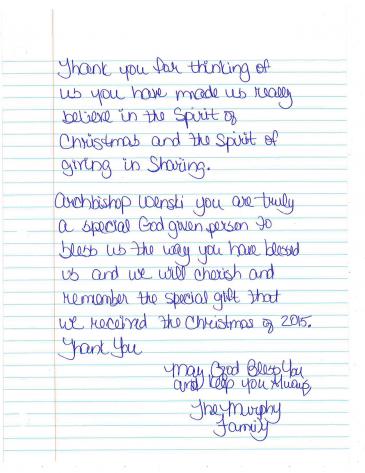 Thank you for thinking of
us you have made us really
believe in the Spirit of
Christmas and the Spirit of
giving in Sharing.
Archbishop Wenski you are truly
a special God given person to
bless us the way you have blessed
us and we will cherish and
remember the special gift that
we received the Christmas of 2015.
Thank You
May God Bless You
and keep you Always
The Murphy
Family